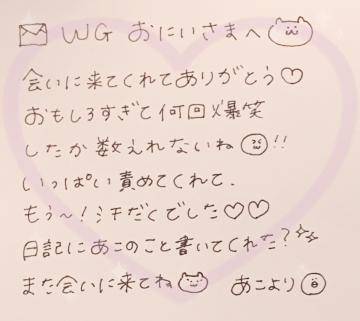 WG おにいさまへ
会いに来てくれてありがとう♡
おもしろすぎて何回爆笑
したか数えれないね!!
いっぱい責めてくれて、
もぅ〜!汗だくでした♡♡
日記にあこのこと書いてくれた?
また会いに来てね
あこより